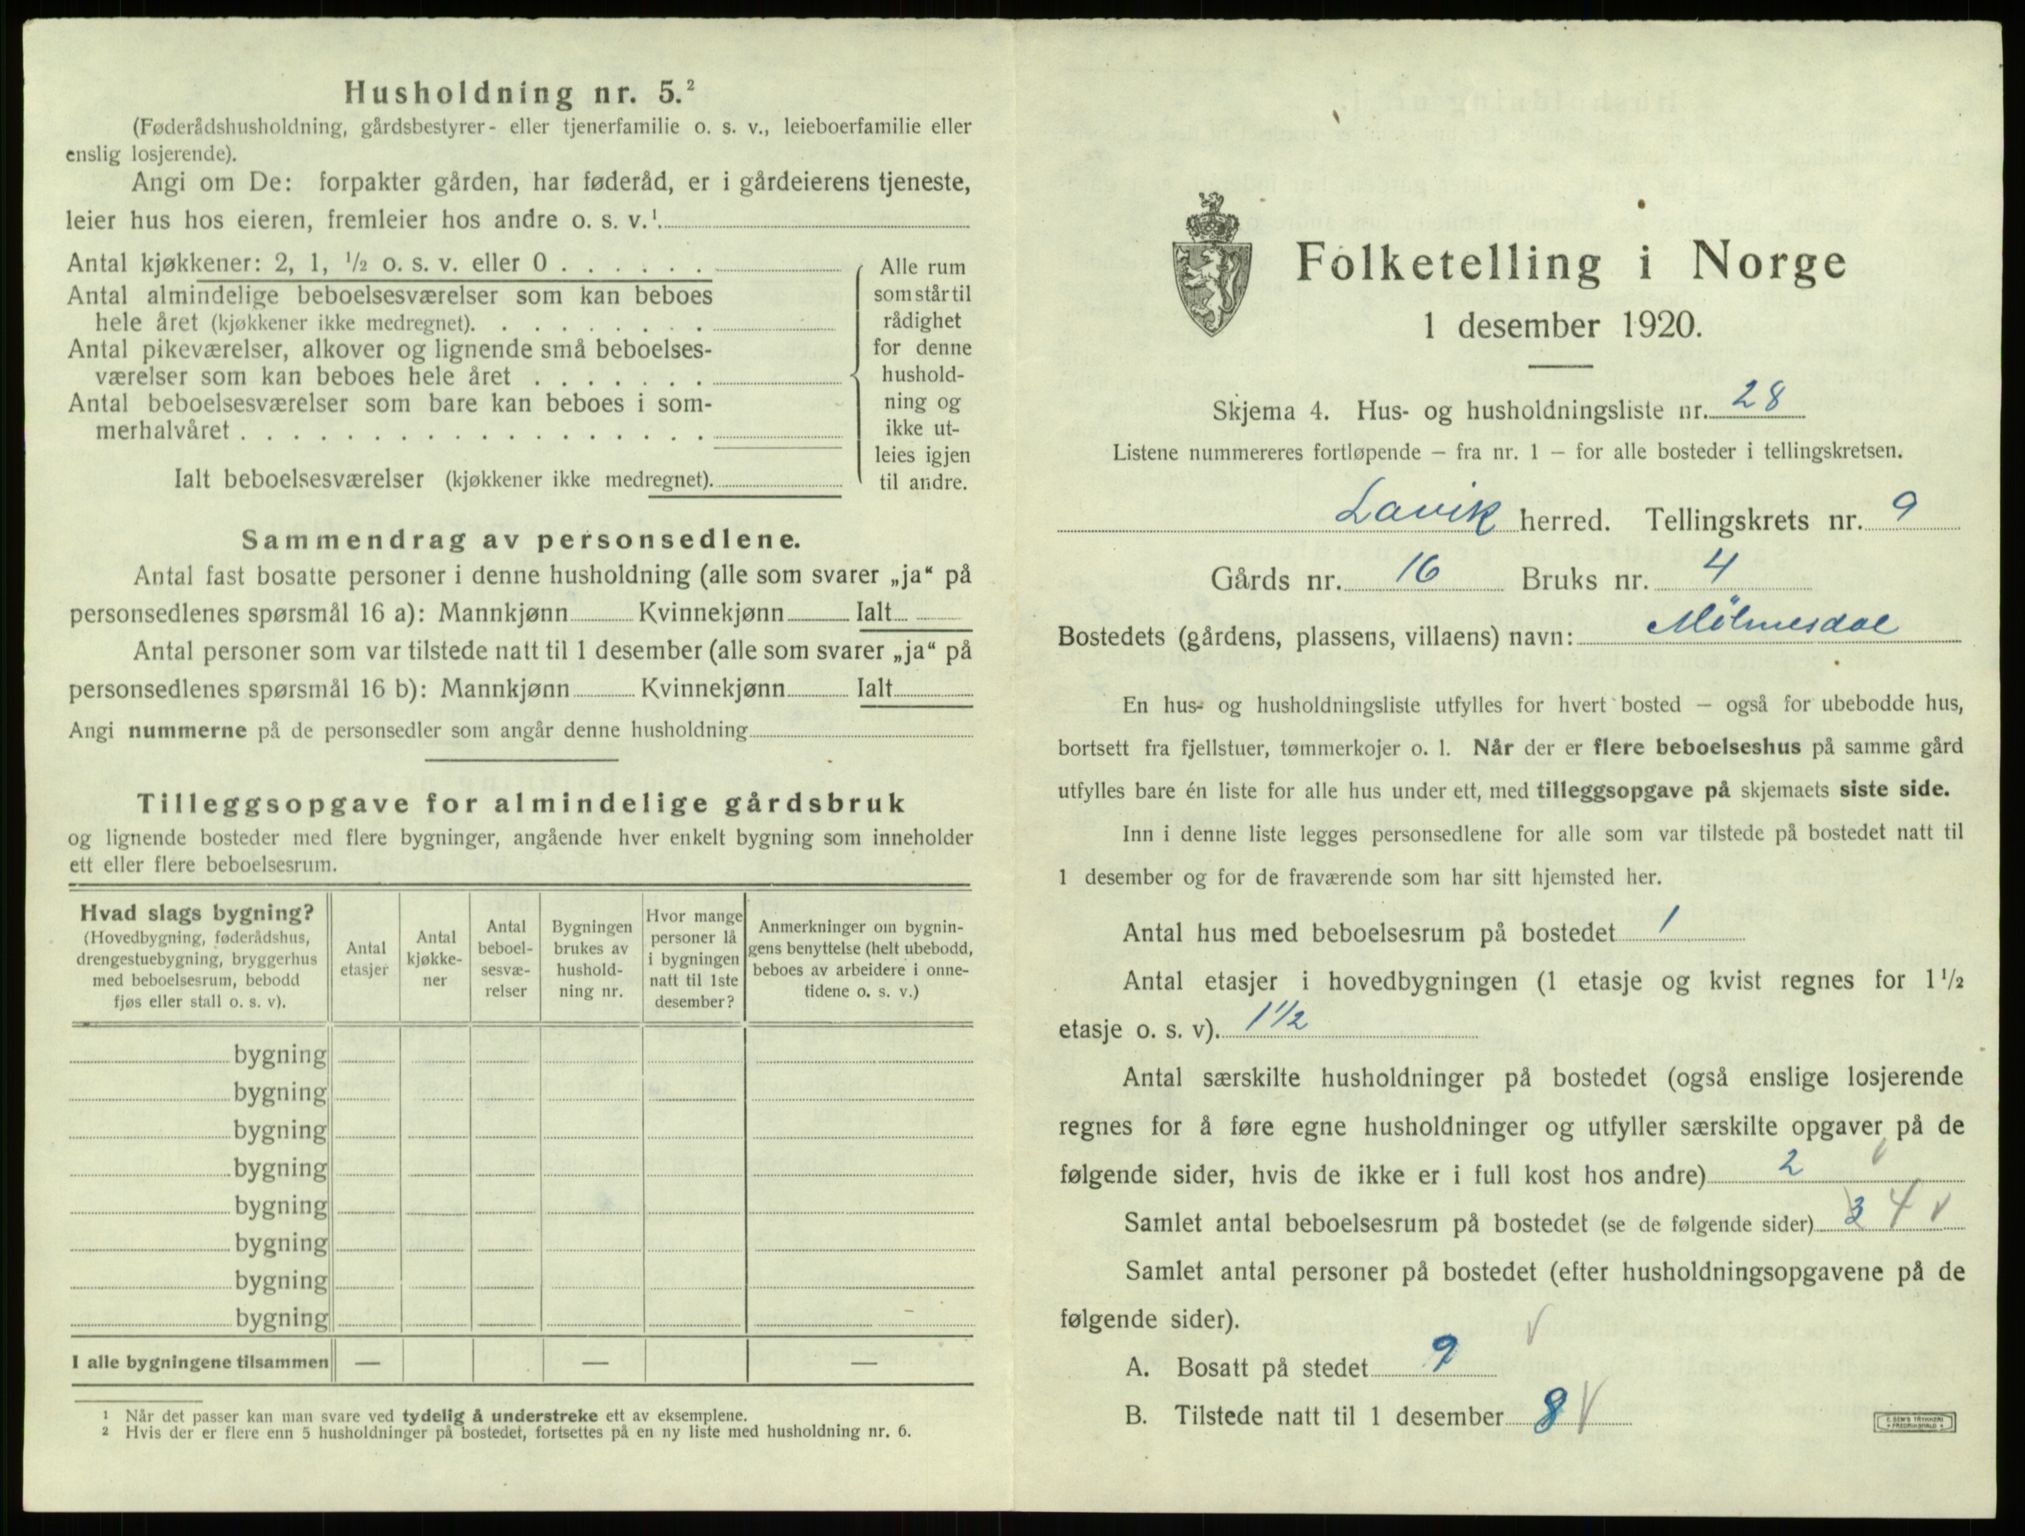 Husholdning nr. 5.²
(Føderådshusholdning, gårdsbestyrer- eller tjenerfamilie o. s. v., leieboerfamilie eller
enslig losjerende).
Angi om De: forpakter gården, har føderåd, er i gårdeierens tjeneste,
leier hus hos eieren, fremleier hos andre o. s. v.¹
Antal kjøkkener: 2, 1, ½ o. s. v. eller 0 . . . . . .
Antal almindelige beboelsesværelser som kan beboes
hele året (kjøkkener ikke medregnet). . . . . . . . .
Antal pikeværelser, alkover og lignende små beboelses-
værelser som kan beboes hele året . . . . . . .
Antal beboelsesværelser som bare kan beboes i som-
merhalvåret . . . . . . . . . . . . . . . . . .
Ialt beboelsesværelser (kjøkkener ikke medregnet).
Alle rum
som står til
rådighet
for denne
hushold-
ning og
ikke ut-
leies igjen
til andre.
Sammendrag av personsedlene.
Antal fast bosatte personer i denne husholdning (alle som svarer „ja“ på
personsedlenes spørsmål 16 a): Mannkjønn Kvinnekjønn Ialt
Antal personer som var tilstede natt til 1 desember (alle som svarer „ja“ på
personsedlenes spørsmål 16 b): Mannkjønn Kvinnekjønn Ialt
Angi nummerne på de personsedler som angår denne husholdning
Tilleggsopgave for almindelige gårdsbruk
og lignende bosteder med flere bygninger, angående hver enkelt bygning som inneholder
ett eller flere beboelsesrum.
Hvad slags bygning?
(Hovedbygning, føderådshus,
drengestuebygning, bryggerhus
med beboelsesrum, bebodd
fjøs eller stall o. s. v).
Antal
etasjer
Antal
kjøkke-
ner
Antal
beboel-
sesvæ-
relser
Bygningen
brukes av
hushold-
ning nr.
Hvor mange
personer lå
i bygningen
natt til 1ste
desember?
Anmerkninger om bygnin-
gens benyttelse (helt ubebodd,
beboes av arbeidere i onne-
tidene o. s. v.)
bygning
bygning
bygning
bygning
bygning
bygning
bygning
bygning
I alle bygningene tilsammen — — —
¹ Når det passer kan man svare ved tydelig å understreke ett av eksemplene.
² Hvis der er flere enn 5 husholdninger på bostedet, fortsettes på en ny liste med husholdning nr. 6.
Folketelling i Norge
1 desember 1920.
Skjema 4. Hus- og husholdningsliste nr. 28
Listene nummereres fortløpende – fra nr. 1 – for alle bosteder i tellingskretsen.
Lavik herred. Tellingskrets nr. 9
Gårds nr. 16 Bruks nr. 4
Bostedets (gårdens, plassens, villaens) navn: Mølmesdal
En hus- og husholdningsliste utfylles for hvert bosted – også for ubebodde hus,
bortsett fra fjellstuer, tømmerkojer o. l. Når der er flere beboelseshus på samme gård
utfylles bare én liste for alle hus under ett, med tilleggsopgave på skjemaets siste side.
Inn i denne liste legges personsedlene for alle som var tilstede på bostedet natt til
1 desember og for de fraværende som har sitt hjemsted her.
Antal hus med beboelsesrum på bostedet 1
Antal etasjer i hovedbygningen (1 etasje og kvist regnes for 1 ½
etasje o. s. v). 1½
Antal særskilte husholdninger på bostedet (også enslige losjerende
regnes for å føre egne husholdninger og utfyller særskilte opgaver på de
følgende sider, hvis de ikke er i full kost hos andre) 2 √
Samlet antal beboelsesrum på bostedet (se de følgende sider) 3 4 √
Samlet antal personer på bostedet (efter husholdningsopgavene på de
følgende sider).
A. Bosatt på stedet 9 √
B. Tilstede natt til 1 desember 8 √
E. SEM'S TRYKKERI
FREDRIKSHALD